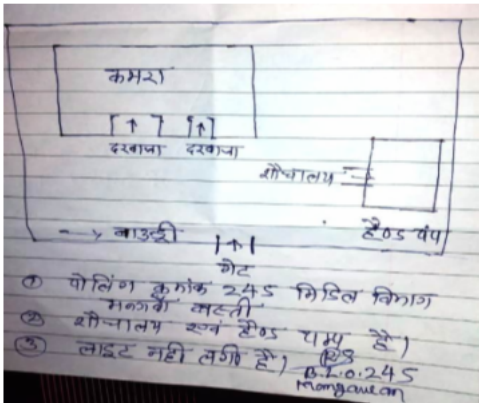 कमरा
दरवाजा दरवाजा
शौचालय
हैण्ड पंप
--> बाउन्ड्री
गेट
① पोलिंग क्रमांक 245 मिडिल विभाग
मनगवां बस्ती
② शौचालय एवं हैण्ड पम्प है।
③ लाइट नही लगी है।
B.L.O. 245
Mangawan